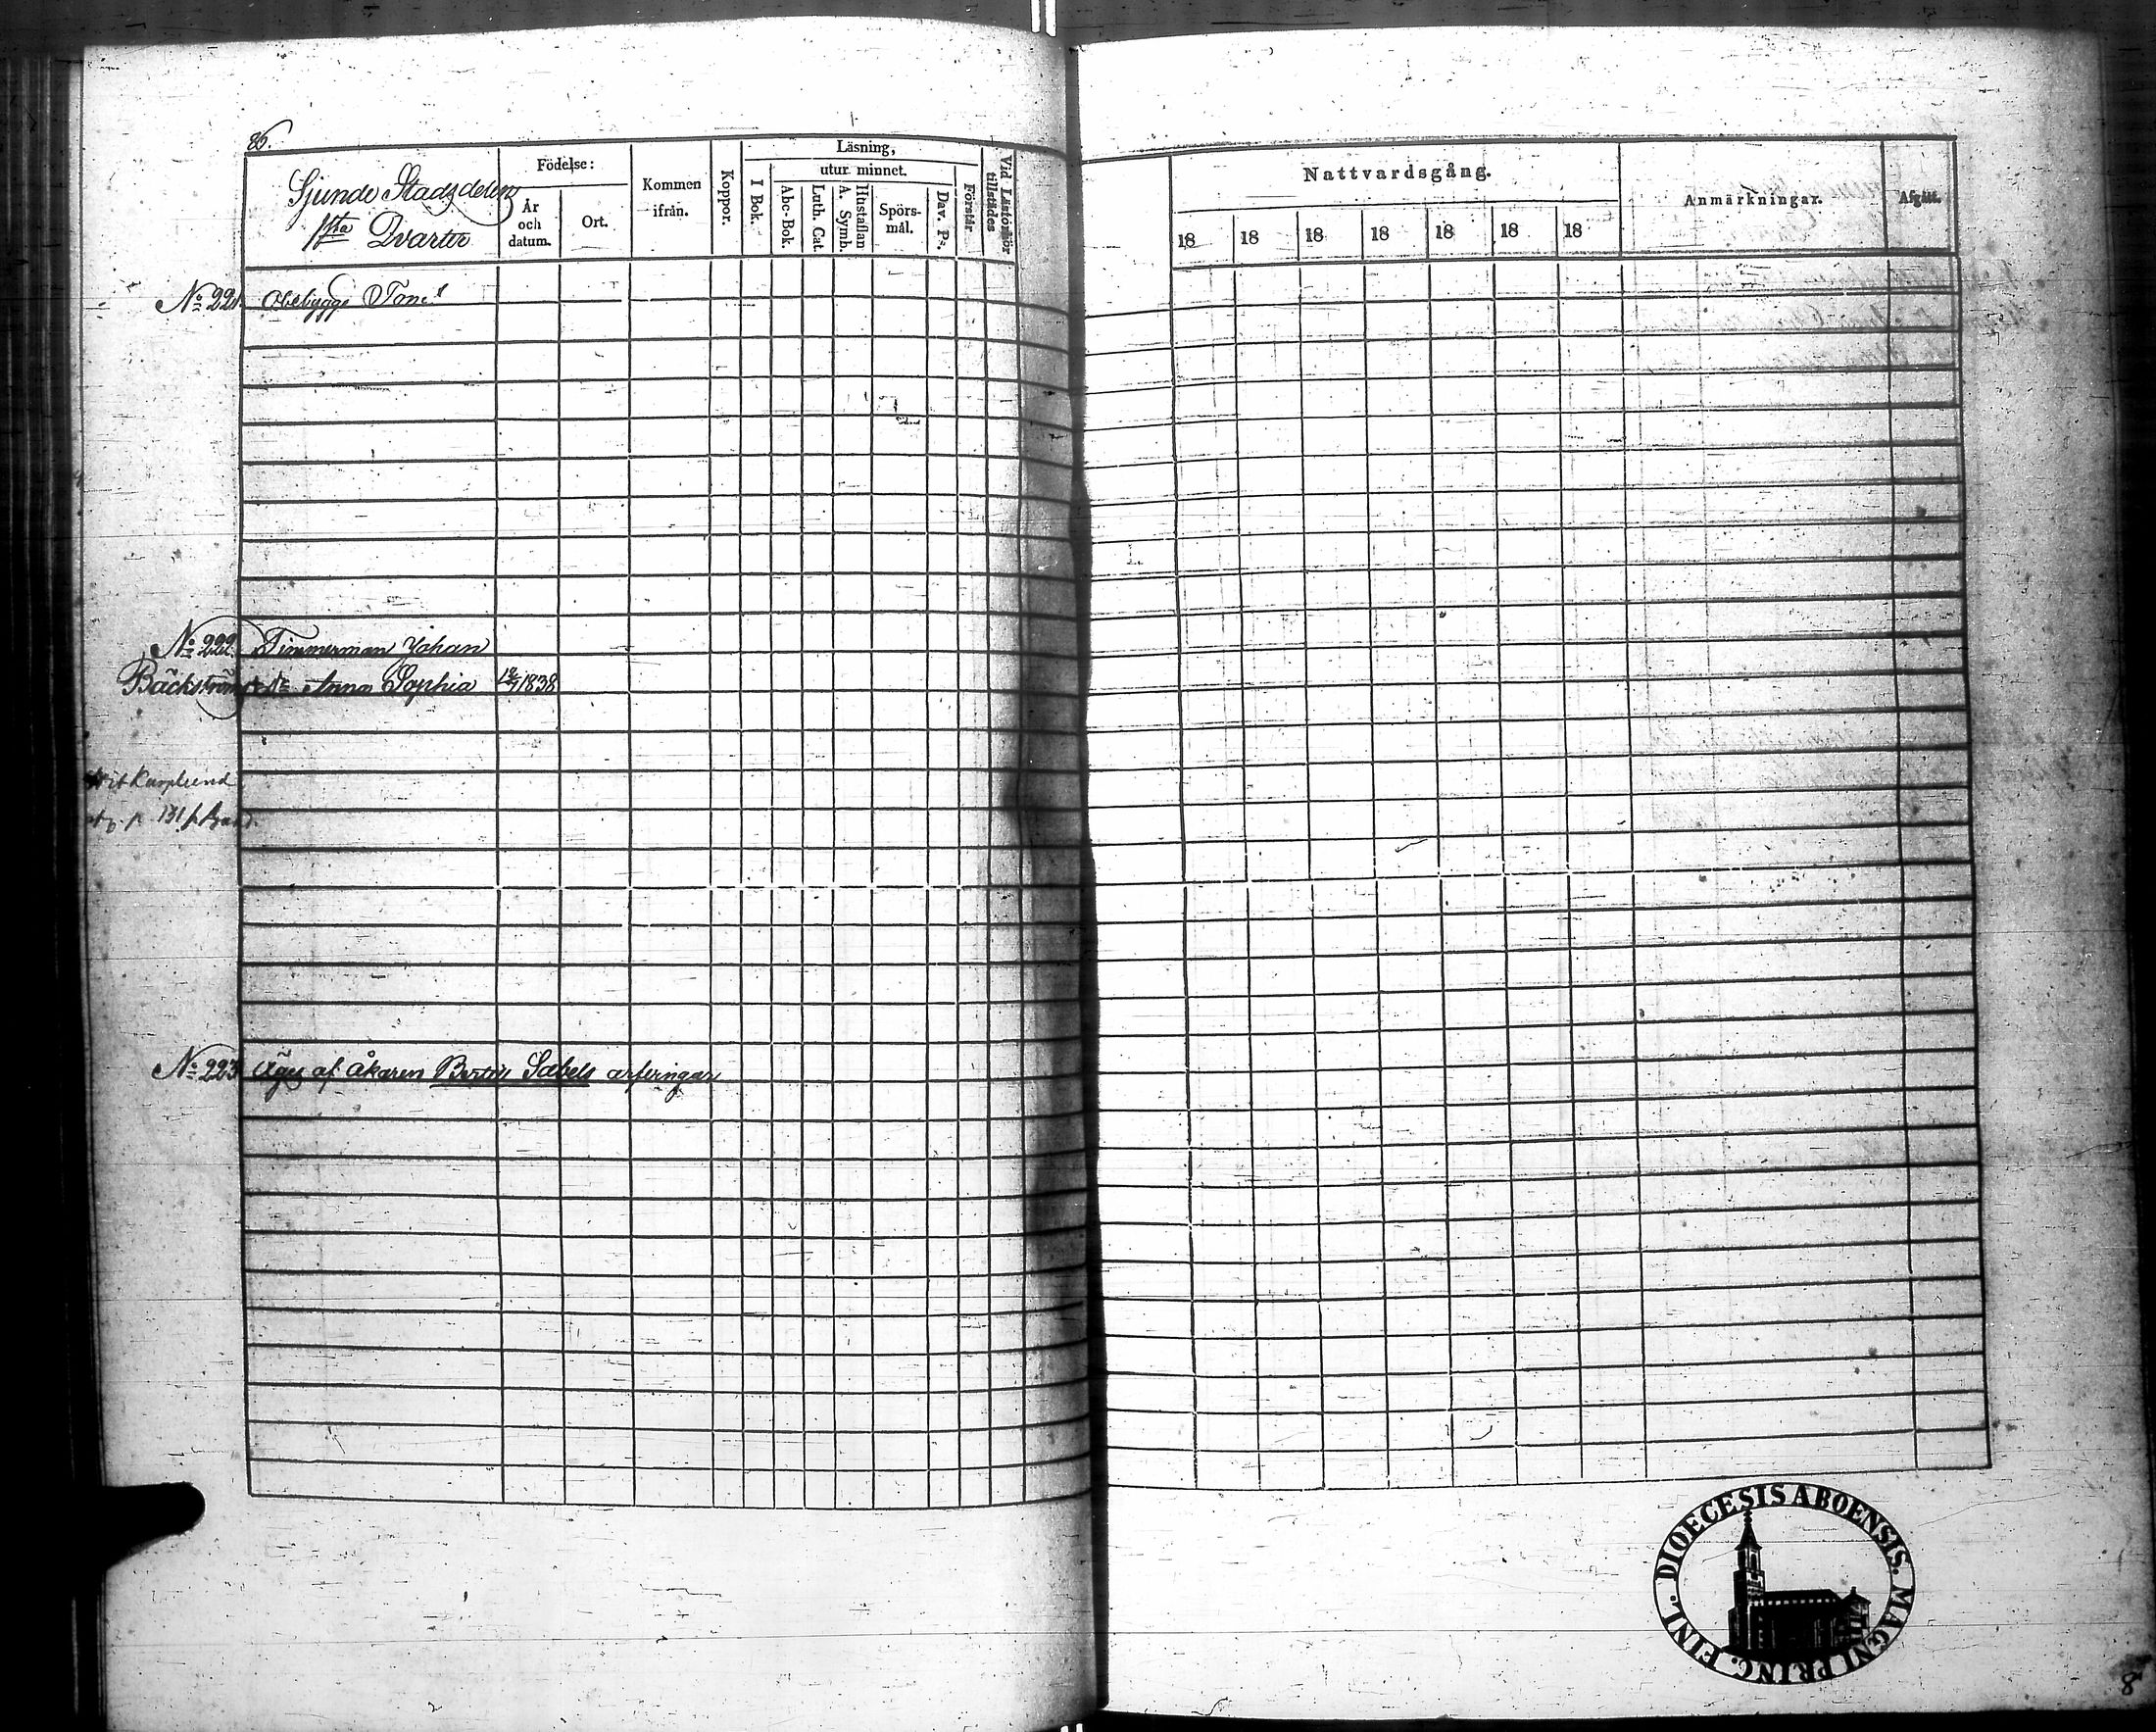 86.
Sjunde Stadsdelens
1sta Qvarter
Födelse:
År
och
datum.
Ort.
Kommen
ifrån.
Koppor.
Läsning,
utur minnet.
I Bok.
Abc-Bok.
Luth. Cat.
A. Symb.
Hustaflan
Spörs-
mål.
Dav. Ps.
Förstår
Vid Läsförhör
tillstädes
Nattvardsgång.
18 18 18 18 18 18 18
Anmärkningar.
Afgått.
No 221. Obebygg Tomt
No 222. Timmerman Johan
Bäckström Anna Sophia 1838
No 223 Äges af åkaren Bertill Sabels arfvingar
DIOECESIS ABOENSIS. MAGNI PRINC. FINL.
8